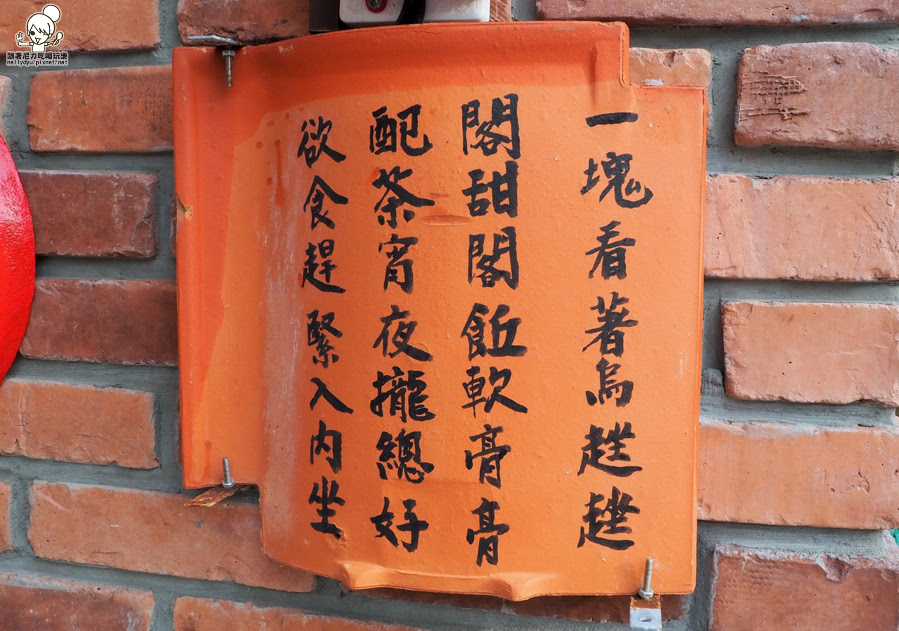 一塊看著烏趖趖
閣甜閣飯軟膏膏
配茶宵夜攏總好
欲食趕緊入內坐
跟著尼力吃喝玩樂
nellydyu.pixnet.net